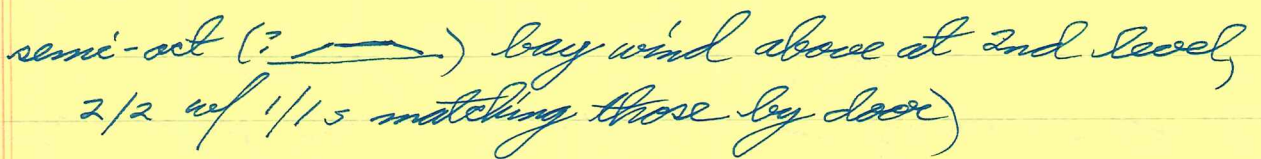 semi-oct (? ) bay wind above at 2nd level,
2/2 w/ 1/1s matching those by door)